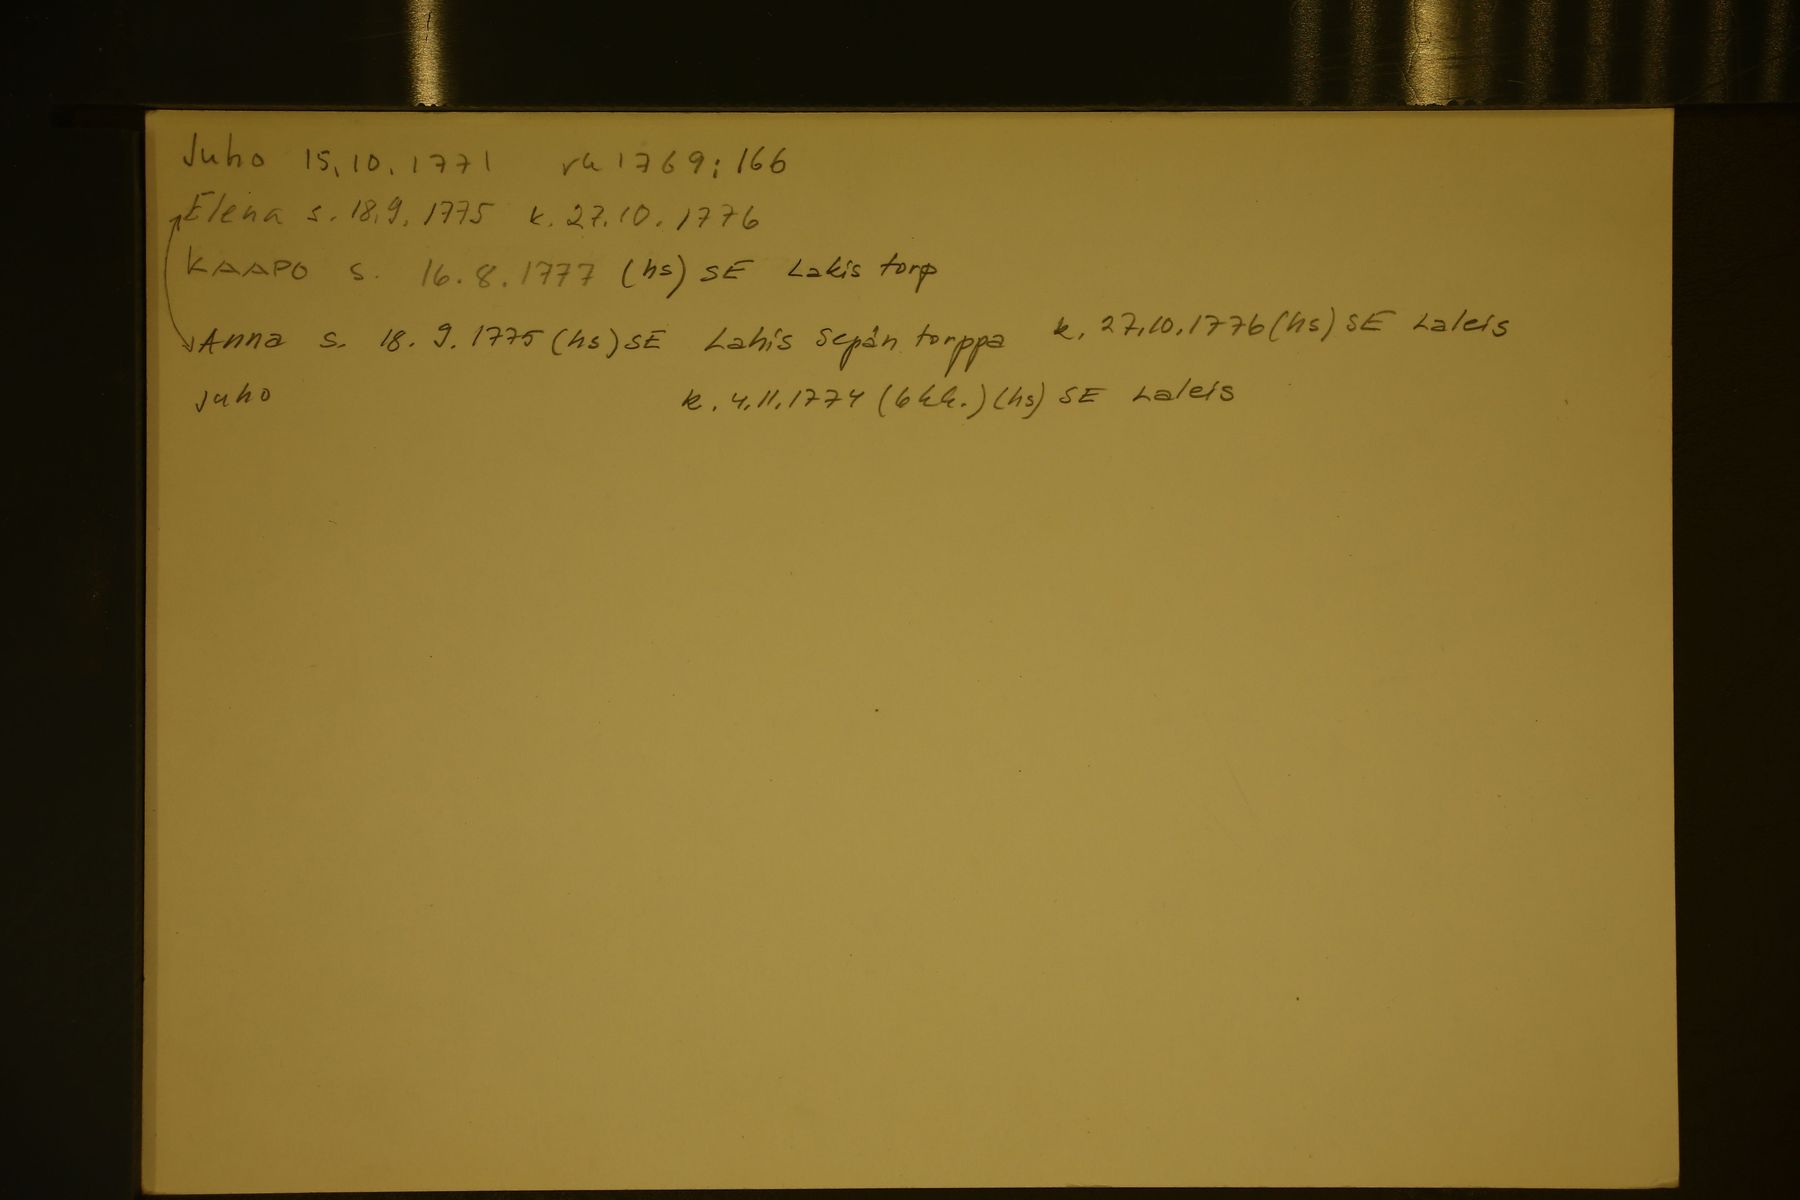 Juho 15.10.1771 rk 1769:166
Elena s. 18.9.1775 k. 27.10.1776
KAAPO s. 16.8.1777 (hs) SE Lakis torp
Anna s. 18.9.1775 (hs) SE Lahis Sepän torppa k. 27.10.1776 (hs) SE Laleis
Juho k. 4.11.1774 (6 kk.) (hs) SE Laleis